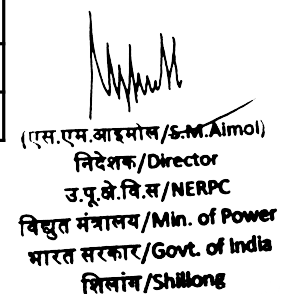 (एस.एम.आइमोल/S.M.Aimol)
निदेशक/Director
उ.पू.क्षे.वि.स/NERPC
विद्युत मंत्रालय/Min. of Power
भारत सरकार/Govt. of India
शिलांग/Shillong